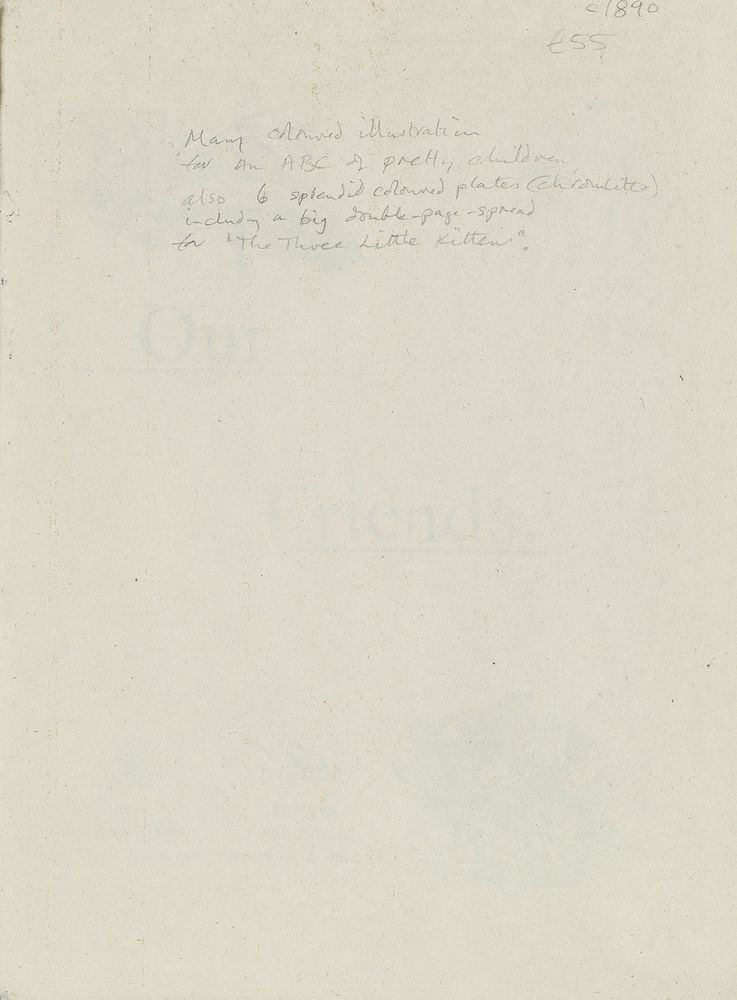 c1890
£55
Many coloured illustration
for An ABC of pretty children
also 6 splendid coloured plates (chromlitho)
including a big double-page-spread
for "The Three Little Kittens".
Our
Friends.